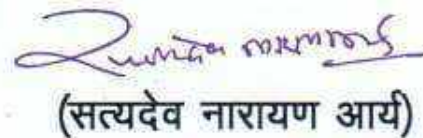 (सत्यदेव नारायण आर्य)